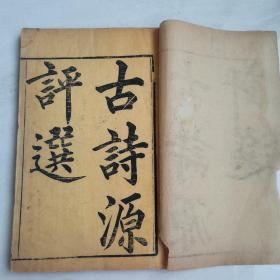 古詩源
評選